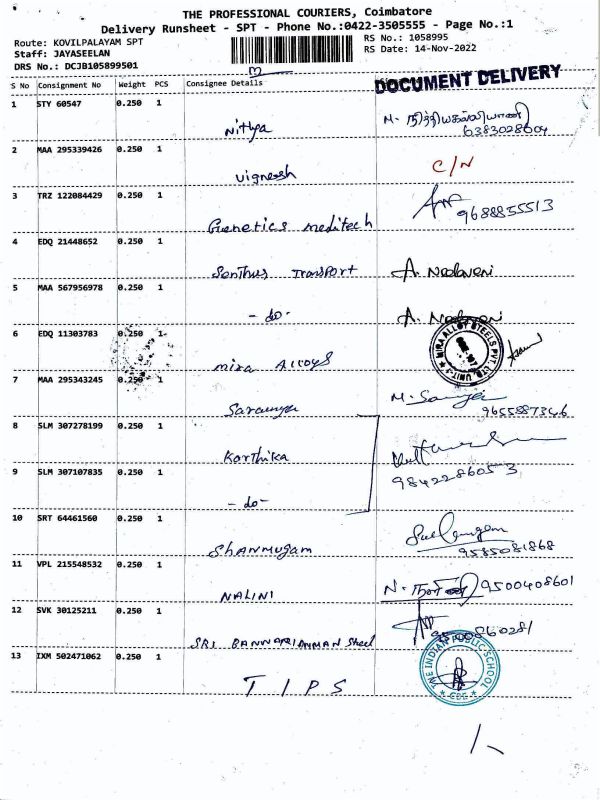 THE PROFESSIONAL COURIERS, Coimbatore
Delivery Runsheet - SPT - Phone No.:0422-3505555 - Page No.:1
Route: KOVILPALAYAM SPT
RS No.: 1058995
Staff: JAYASEELAN
RS Date: 14-Nov-2022
DRS No.: DCJB105899501
S No Consignment No Weight PCS Consignee Details
DOCUMENT DELIVERY
1 STY 60547 0.250 1
Nithya
6383028604
2 MAA 295339426 0.250 1
Vignesh C/N
3 TRZ 122084429 0.250 1
Genetics meditech 9688855513
4 EDQ 21448652 0.250 1
Senthus Transport
5 MAA 567956978 0.250 1
- do -
6 EDQ 11303783 0.250 1
mira Alloys
MIRA ALLOY STEELS PVT. LTD. UNIT-1
7 MAA 295343245 0.250 1
Saranya
9655887346
8 SLM 307278199 0.250 1
Karthika
9842286053
9 SLM 307107835 0.250 1
- do -
10 SRT 64461560 0.250 1
Shanmugam
9585081868
11 VPL 215548532 0.250 1
NALINI
9500408601
12 SVK 30125211 0.250 1
SRI BANNARIAMMAN Steel
13 IXM 502471062 0.250 1
TIPS
THE INDIAN PUBLIC SCHOOL